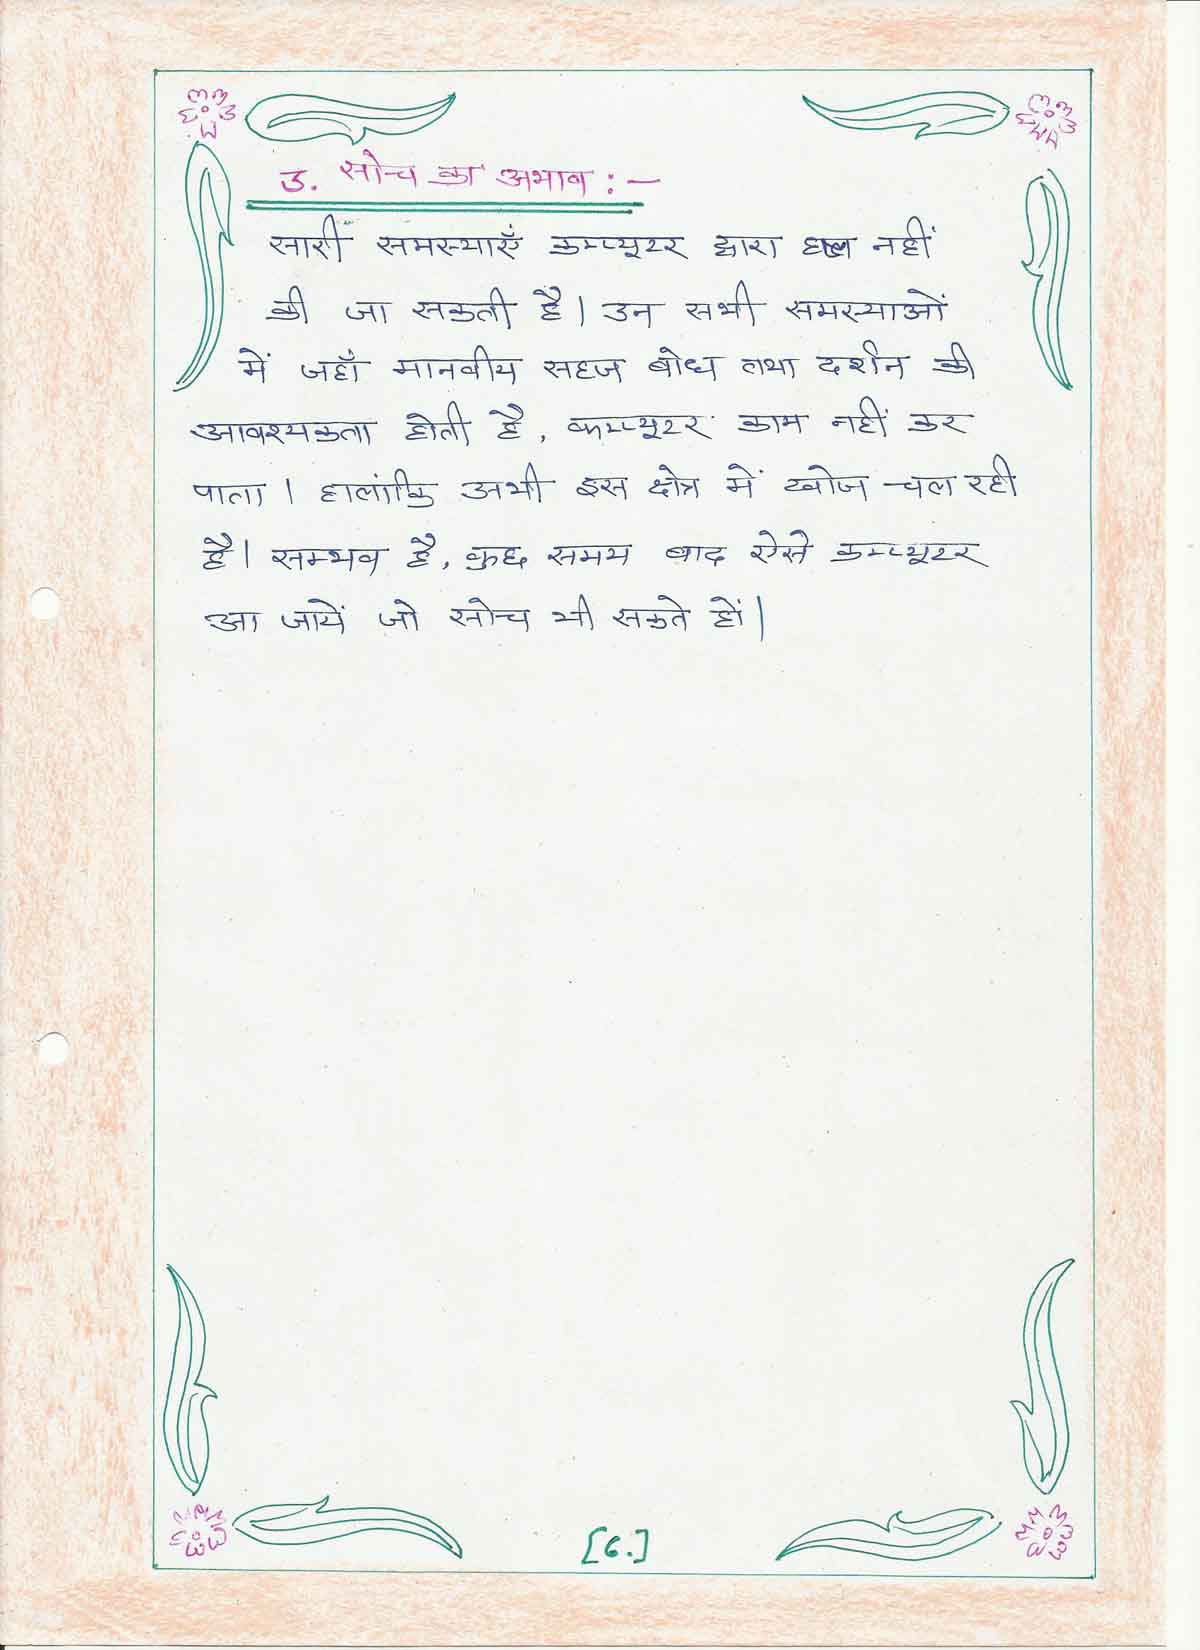 3. सोच का अभाव : –
सारी समस्याएँ कम्प्यूटर द्वारा हल नहीं
की जा सकती है। उन सभी समस्याओं
में जहाँ मानवीय सहज बोध तथा दर्शन की
आवश्यकता होती है, कम्प्यूटर काम नहीं कर
पाता। हालांकि अभी इस क्षेत्र में खोज चल रही
है। सम्भव है, कुछ समय बाद ऐसे कम्प्यूटर
आ जायें जो सोच भी सकते हों।
[6.]